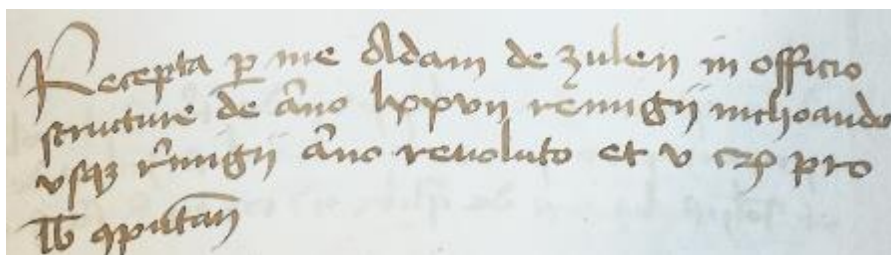 Recepta p me Adam de zulen in officio
structure de ano lxxvii remigii inchoando
usqz rmigii ano reuoluto et v
pro
lb 9putan